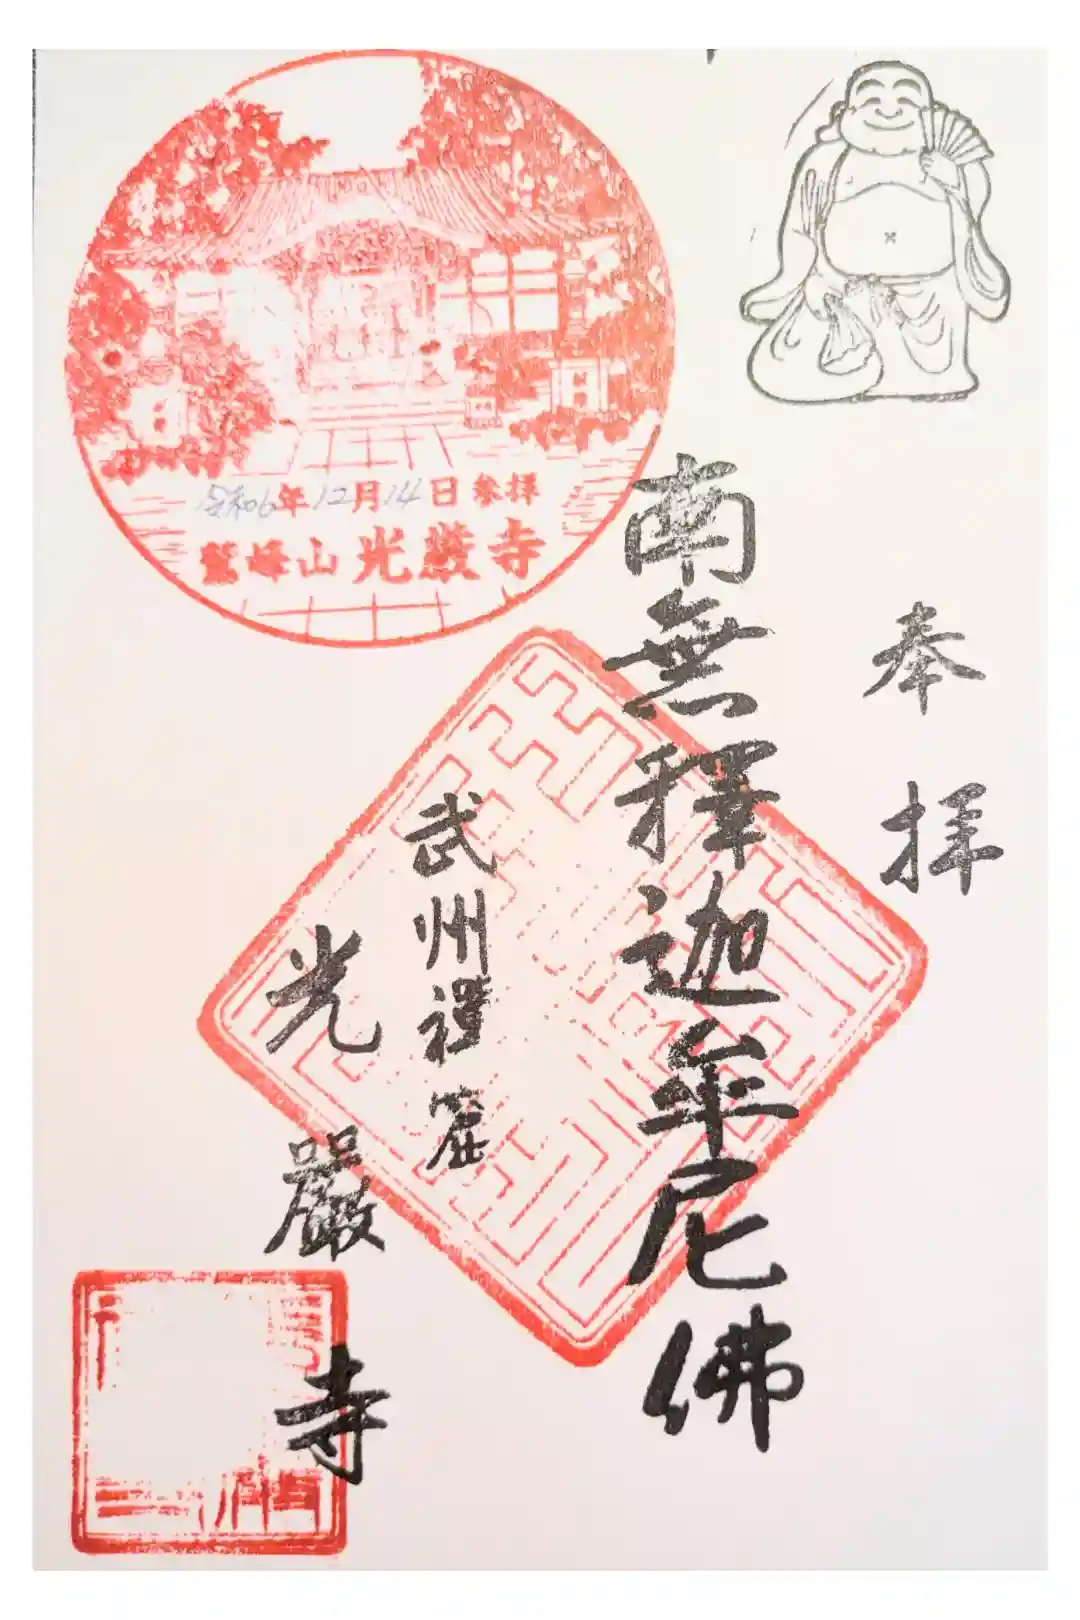 奉拝
南無釋迦牟尼佛
武州禮窟
光嚴寺
令和6年12月14日参拝
鷲峰山光嚴寺